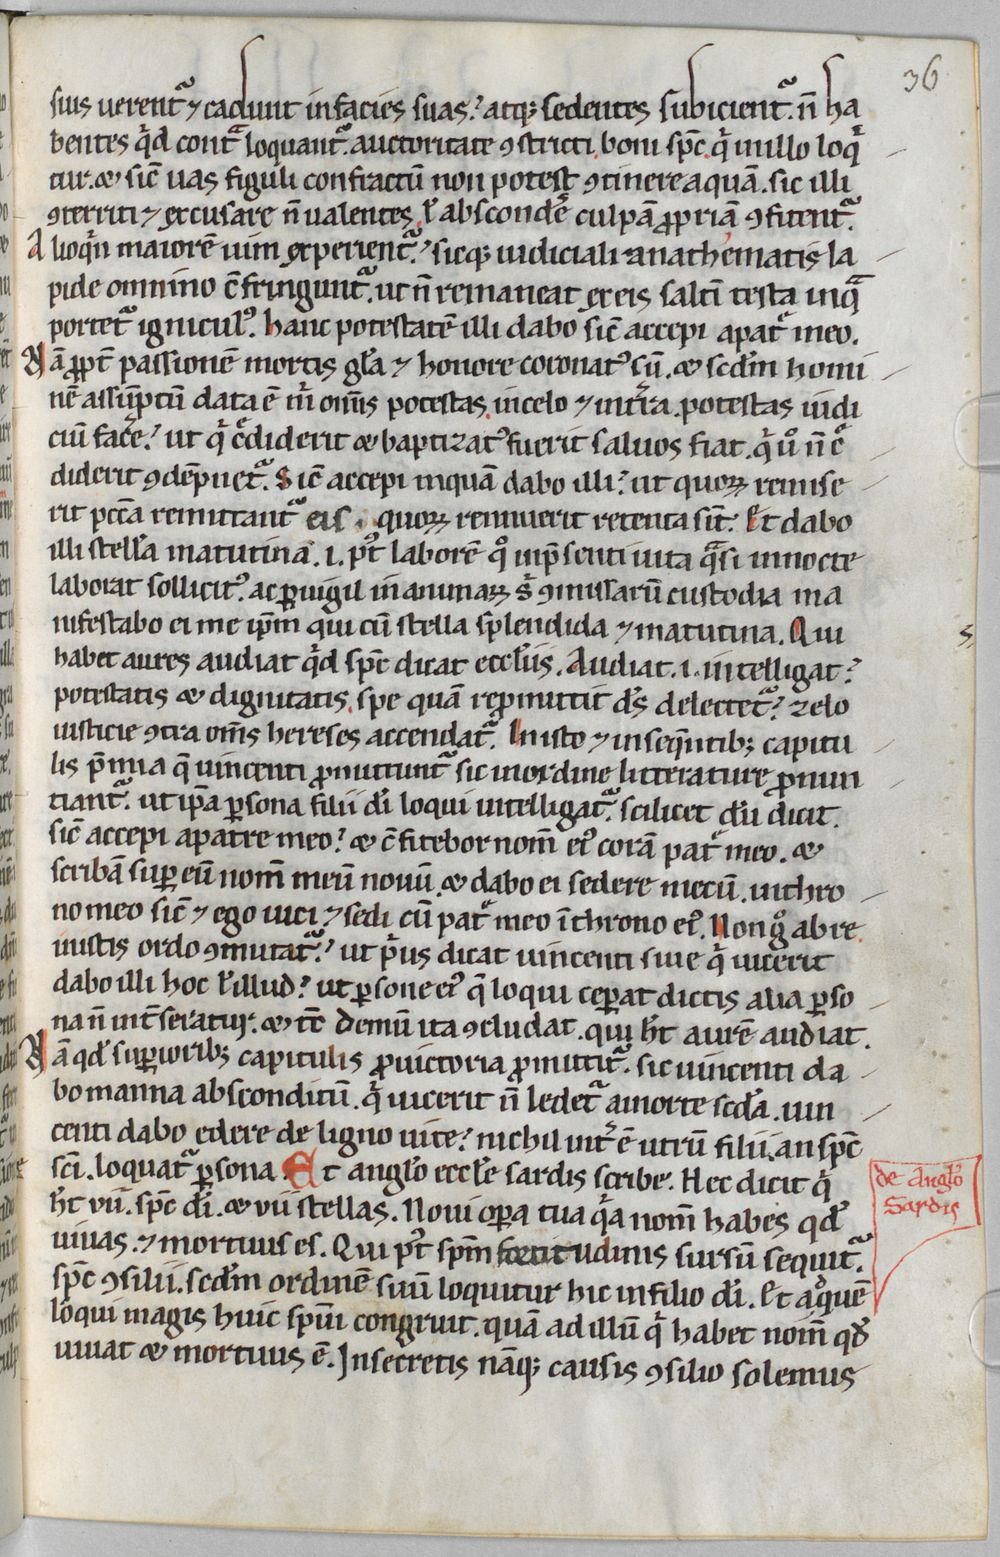 36
suis uerentᷓ ⁊ cadunt in facies suas. atq; sedentes subicientᷓ. n̄ ha
bentes qͥd contᷓ loquantᷓ. auctoritate ꝯstricti. boni sp̄c. qͥ nullo loqͥ
tur. & sic̄ uas figuli confractū non potest ꝯtinere aquā. sic illi
ꝯterriti ⁊ excusare n̄ ualentes. ł abscondē culpā ꝓpriā ꝯfitentᷓ.
A lioqͥn maiorē uim experientᷓ. sicq; iudiciali anathematis la
pide omnino c̄fringuntᷓ. ut n̄ remaneat ex eis saltī testa in qᷓ
portetᷓ igniculꝰ. hanc potestatē illi dabo sic̄ accepi a patͥ meo.
Nā ꝓpt̄ passionē mortis gl̄a ⁊ honore coronatꝰ sū. & scd̄m homi
nē assūptū data ē m̄ om̄is potestas in celo ⁊ in tr̄ra. potestas iudi
ciū facē. ut qͥ c̄diderit & baptizatꝰ fuerit saluos fiat. qͥ uͦ n̄ c̄
diderit ꝯdēpnetᷓ. Sic̄ accepi inquā dabo illi. ut quoꝝ remise
rit pc̄ca remittantᷓ eis. quoꝝ retinuerit retenta sīt. Et dabo
illi stellā matutinā .i. pꝰt laborē qͦ in p̄senti uita qᷓsi in nocte
laborat sollicitꝰ. ac ꝑuigil in animaꝝ s̄ ꝯmissarū custodia ma
nifestabo ei me ip̄m qui cū stella splendida ⁊ matutina. Qui
habet aures audiat qͥd sp̄c dicat eccl̄iis. Audiat .i. intelligat.
potestatis & dignitatis. spe quā reꝓmittit dˉs delectetᷓ. zelo
iusticie ꝯtra om̄s hereses accendatᷓ. In isto ⁊ in seqn̄tib; capitu
lis p̄mia q̄ uincenti ꝓmittuntᷓ sic in ordine litterature ꝓnun
tiantᷓ. ut ip̄a ꝑsona filii dī loqui intelligatᷓ. scilicet dū dicit.
sic̄ accepi a patre meo. & c̄fitebor nom̄ eiꝰ corā patͥ meo. &
scribā suꝑ eū nom̄ meū nouū. & dabo ei sedere mecū. in thro
no meo sic̄ ⁊ ego uici. ⁊ sedi cū patͥ meo ī throno eiꝰ. Non gͦ ab re
iustis ordo ꝯmutatᷓ. ut pͥus dicat uincenti siue qͥ uicerit
dabo illi hoc ł illud. ut ꝑsone eiꝰ q̄ loqui ceperat dictis alia ꝑso
na n̄ int̄seratur. & tc̄ demū ita ꝯcludat. qui h̄t aurē audiat.
Nā qd̄ suꝑiorib; capitulis ꝓ uictoria ꝓmittitᷓ. sic uincenti da
bo manna absconditū. qͥ uicerit n̄ ledetᷓ a morte scd̄a. uin
centi dabo edere de ligno uite. nichil int̄ ē utrū filii. an sp̄c
sc̄i. loquatᷓ ꝑsona Et anglo eccl̄e sardis scribe. Hec dicit qͥ
h̄t vii. sp̄c dī. & vii stellas. Noui oꝑa tua qͥa nom̄ habes qd̄
uiuas. ⁊ mortuus es. Qui pꝰt sp̄m fortitudinis sursū sequitᷓ.
sp̄c ꝯsilii. scd̄m ordinē suū loquitur hic in filio dī. Et aͦquē
loqui magis huic sp̄ui congruit. quā ad illū qͥ habet nom̄ qd̄
uiuat & mortuus ē. In secretis nāq; causis ꝯsilio solemus
de anglo
Sardis